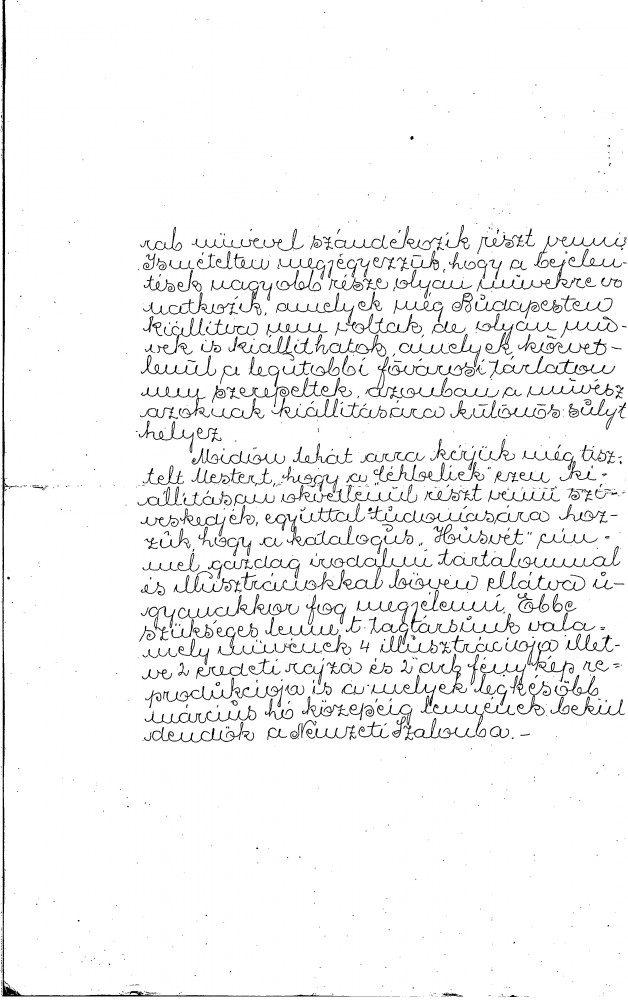 rab művével szándékozik részt venni
Ismételten megjegyezzük, hogy a bejelen-
tések nagyobb része olyan művekre vo
natkozik, amelyek még Budapesten
kiállitva nem voltak, de olyan mű-
vek is kiállithatok, amelyek közvet-
lenül a legutobbi fővárosi tárlaton
nem szerepeltek, azonban a művész
azoknak kiállitására különös sulyt
helyez
Midőn tehát arra kérjük még tisz-
telt Mestert, hogy a "Céhbeliek" ezen ki-
állitásan okvetlenül részt venni szi-
veskedjék, egyuttal tudomására hoz-
zuk, hogy a katalogus "Húsvét" cim-
mel gazdag irodalmi tartalommal
és illusztrációkkal bőven ellátva u-
gyanakkor fog megjelenni. Ebbe
szükséges lenne, t. Tagtársunk vala-
mely művének 4 illusztrációja illet-
ve 2 eredeti rajza és 2 drb fény kép re-
produkcioja is a melyek legkésöbb
március hó közepéig lennének bekül
dendők a Nemzeti Szalonba. -